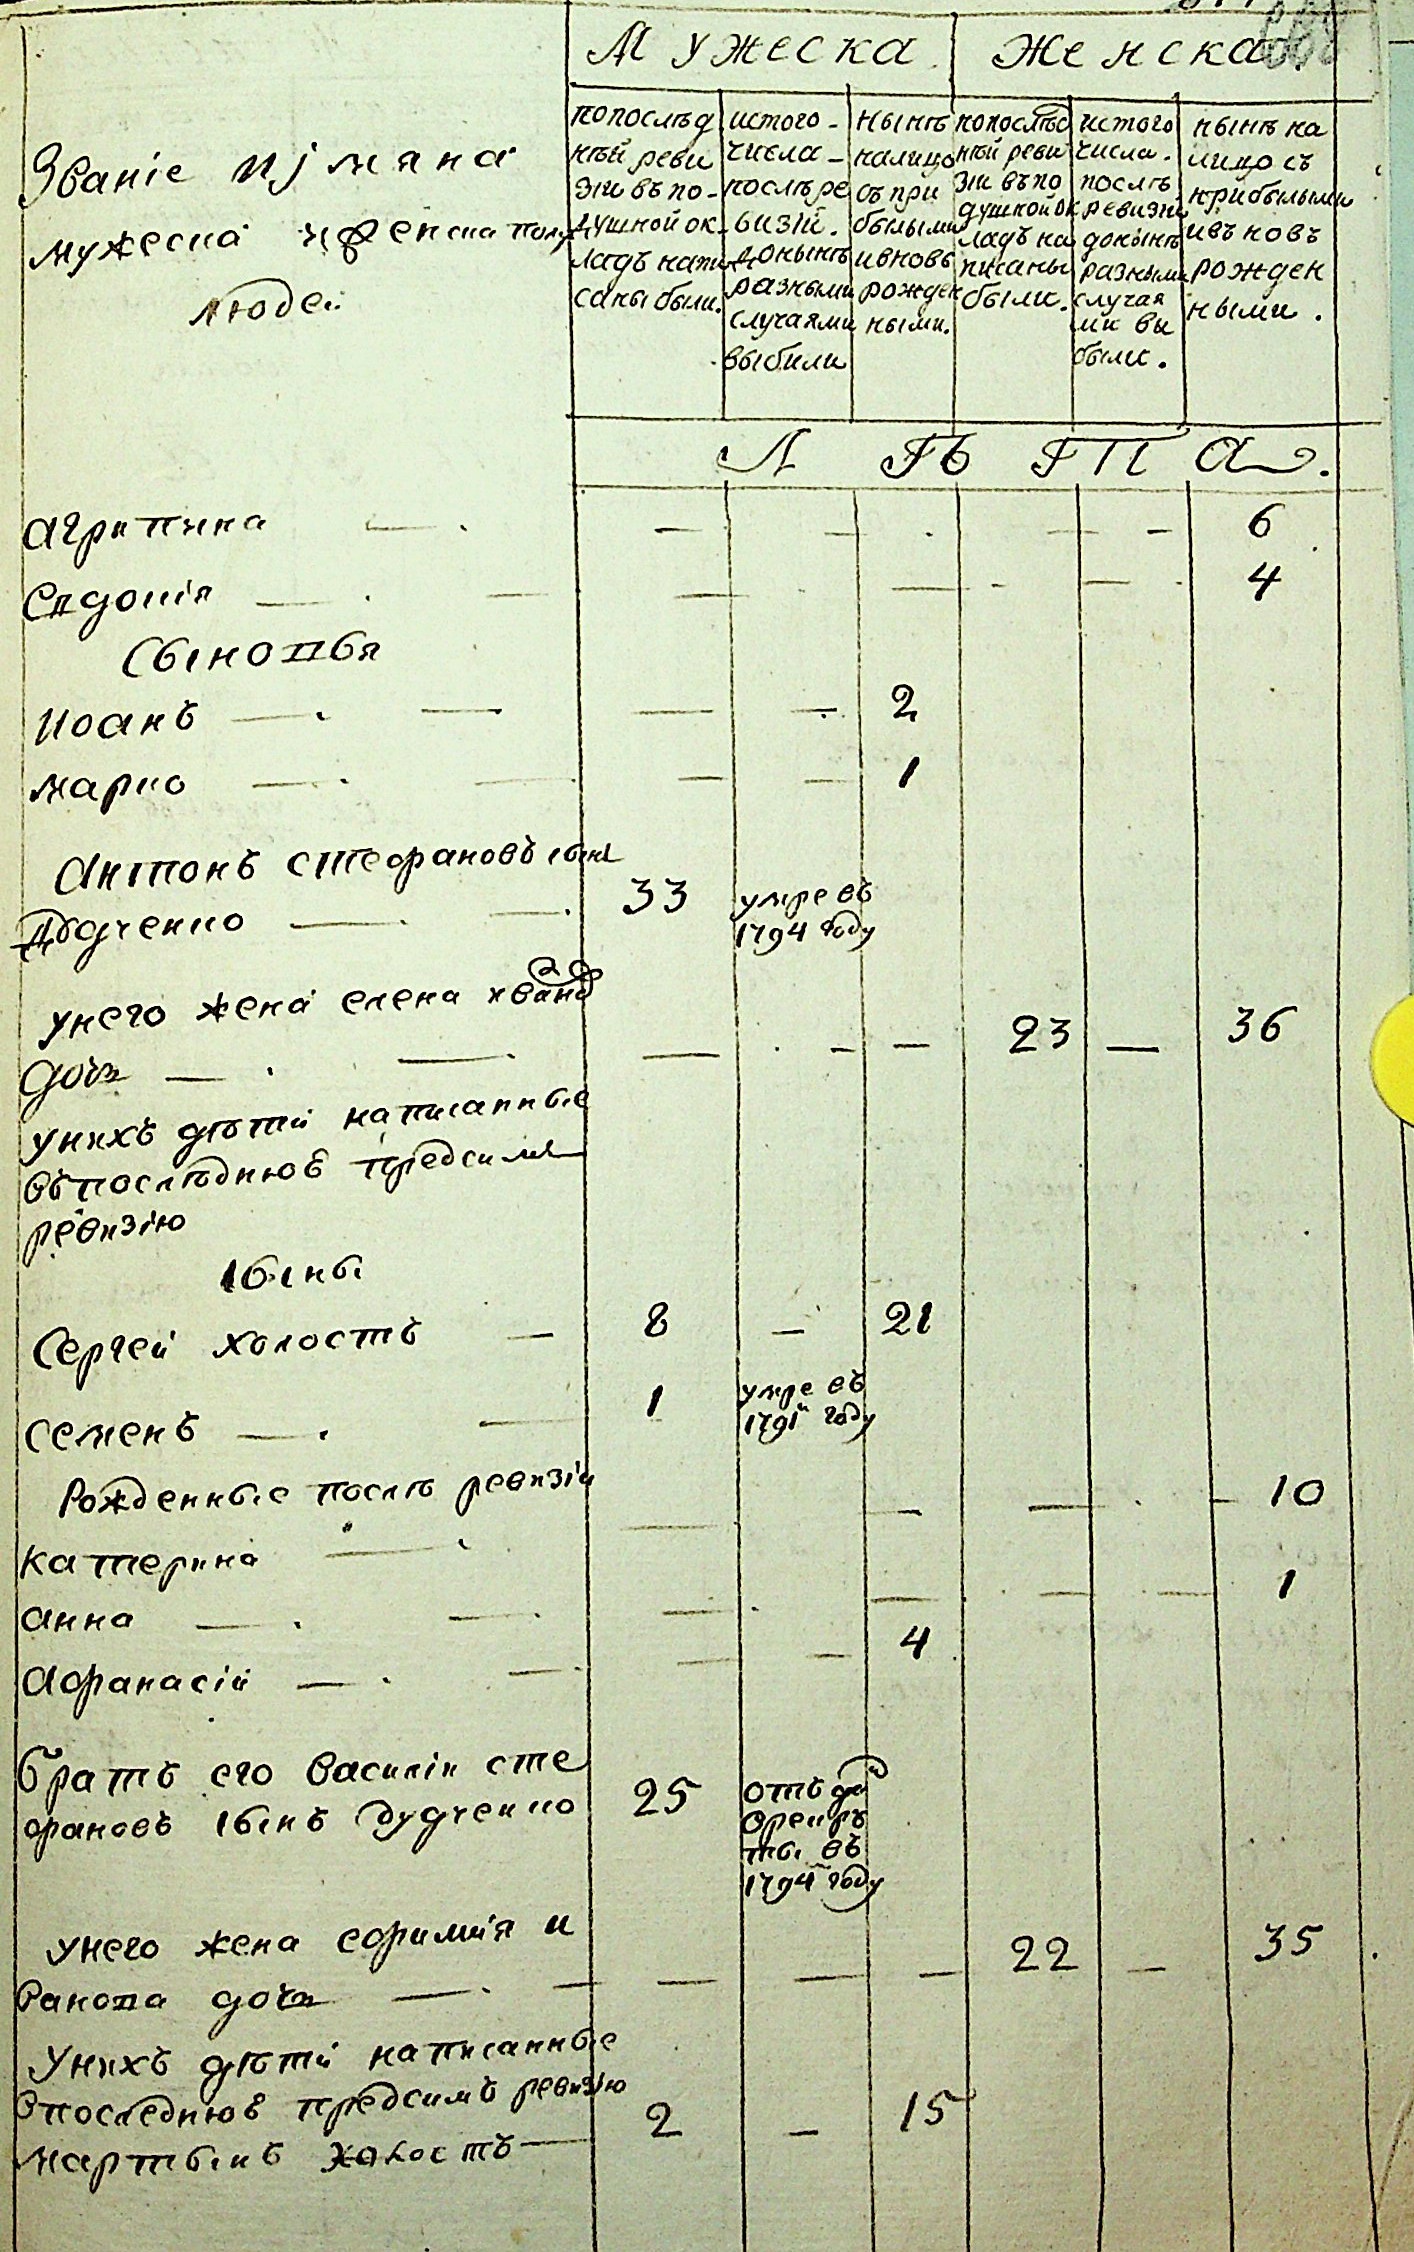 Мужеска. Женска.
Званіе и имяна
мужеска и женска полу
людей
попослѣд
нѣй реви
зіи въ по-
душной ок-
ладъ напи
саны были.
истого-
числа-
послѣ ре
визіи.
донынѣ
разными
случаями
выбили
нынѣ
налицо
съ при
былыми
ивновь
рожден
ными.
попослѣд
нѣй реви
зіи въ по
душной ок
ладъ на
писаны
были.
истого
числа.
послѣ
ревизіи
донынѣ
разными
случая
ми вы
были.
нынѣ на
лицо съ
прибылыми
ивъ новь
рожден
ными.
Л Ѣ Т А.
агрипина — 6
Евдокія — 4
Сыновья
Иоанъ — 2
марко — 1
Антонъ Стефановъ сынъ
Дудченко — 33 умре въ
1794 году
унего жена елена иванова
дочь — 23 — 36
унихъ дѣти написанные
въпослѣднюю предсимъ
ревизію
сыны
Сергей холостъ — 8 — 21
семенъ — 1 умре въ
1791м году
Рожденные послѣ ревизіи
катерина — 10
анна — 1
Афанасій — 4
братъ его василій сте
фановъ сынъ дудченко 25 отъ дан
в рекру
ты въ
1794м году
унего жена ефимія и
ванова дочь — 22 — 35
Унихъ дѣти написанные
впоследнюю предсимъ ревизію
мартынъ холостъ — 2 — 15